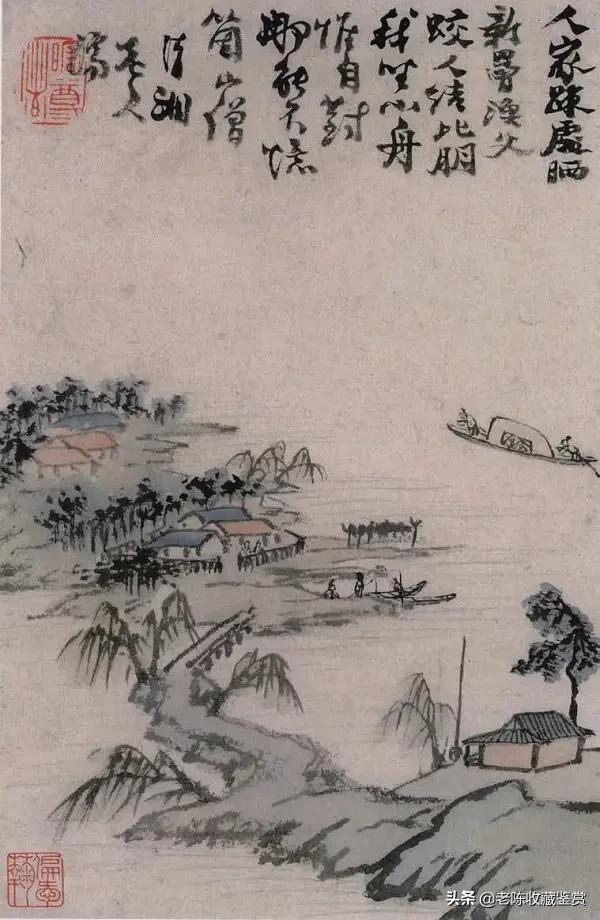 人家疎處晒
新罾漁父
蛟人結比朋
我坐小舟
惟自對
那能不憶
箇山僧
清湘
老人
濟
头条 @老陈收藏鉴赏